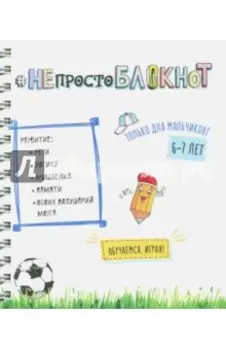 #НЕпростоБЛОКНОТ
ТОЛЬКО ДЛЯ МАЛЬЧИКОВ!
6-7 ЛЕТ
РАЗВИТИЕ:
• РЕЧИ
• ЛОГИКИ
• МЫШЛЕНИЯ
• ПАМЯТИ
• ОБОИХ ПОЛУШАРИЙ
МОЗГА
ОБУЧАЕМСЯ, ИГРАЯ!